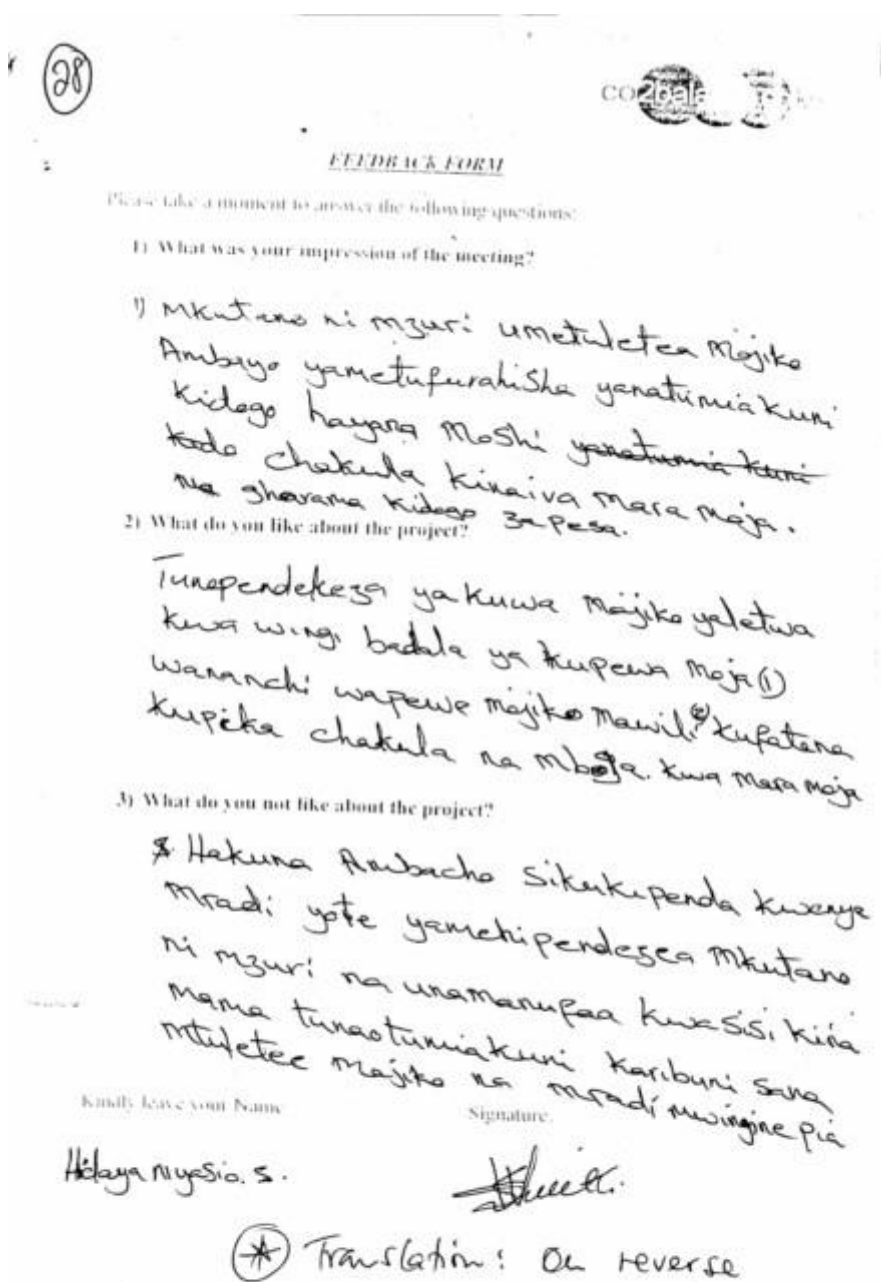 28
CO2bala
FEEDBACK FORM
Please take a moment to answer the following questions:
1) What was your impression of the meeting?
1) Mkutano ni mzuri umetuletea Majiko
Ambayo yametufurahisha yanatumia kuni
kidogo hayana Moshi yanatumia kuni
kido chakula kinaiva mara moja.
na gharama kidogo za pesa.
2) What do you like about the project?
Tunapendekeza ya kuwa Majiko yaletwa
kwa wingi badala ya kupewa Moja (1)
wananchi wapewe majiko mawili kupatana
kupika chakula na mboga. kwa mara moja
3) What do you not like about the project?
Hakuna Ambacho sikukipenda kwenye
Mradi yote yamenipendezea Mkutano
ni mzuri na unamanufaa kwa sisi kina
mama tunaotumia kuni karibuni sana
mtuletee Majiko na mradi mwingine pia
Kindly leave your Name
Signature.
Hidaya Nyasio. S.
* Translation: On reverse